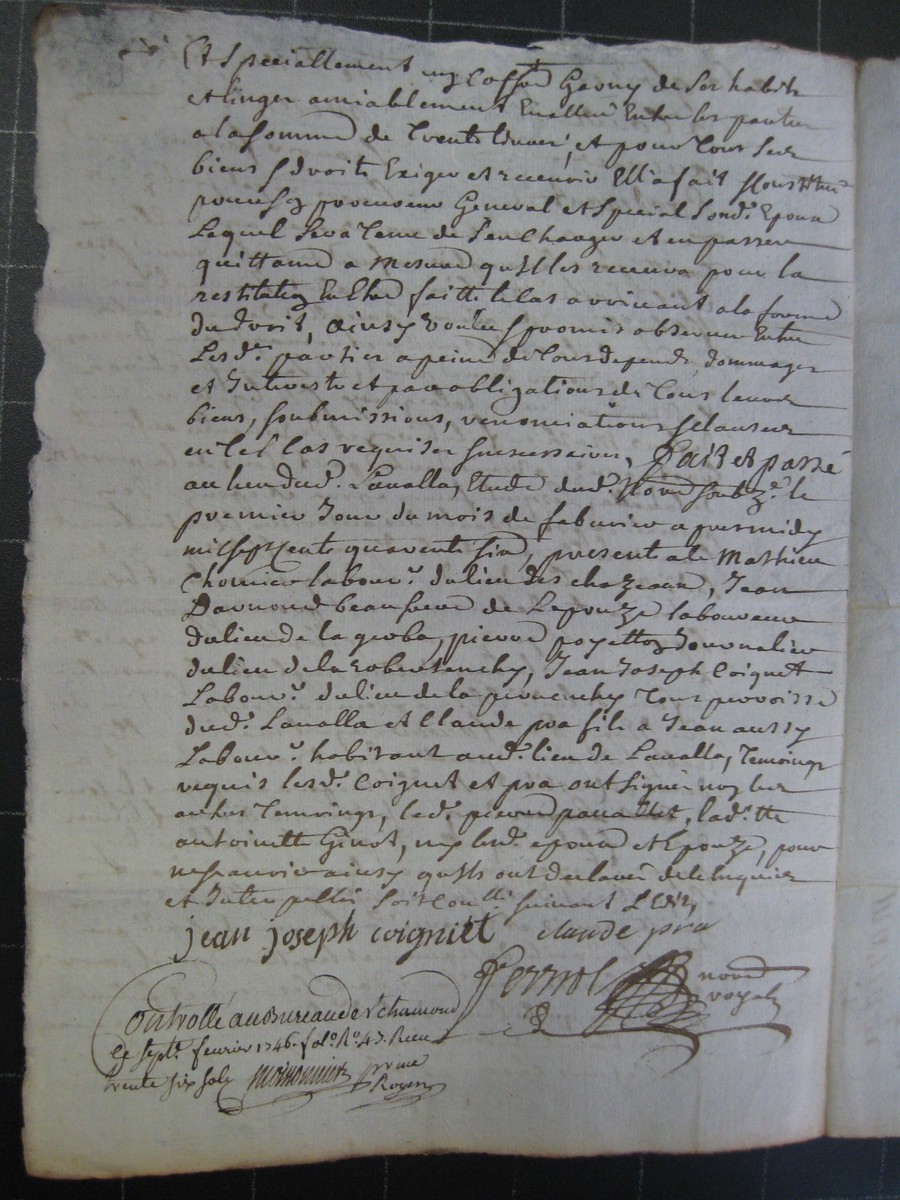 Et speciallement un coffre garny de ses habits
et linger amiablement Evallué Entre les parties
a la somme de trente livres, et pour tous ses
biens & droits Exiger et recevoir Ell'a fait & constitué
pour son procureur General et special sond. Epoux
Lequel sera tenu de s'en Charger et en passer
quittance a mesure qu'il les recevra pour la
restitution En Etre faitte le cas arrivant a la forme
du droit, ainsy voulu & promis observer Entre
Lesd. parties a peine de tous depends, dommages
et Interests et par obligations de tous leurs
biens, soubmissions, renonciations & clauses
en tel cas requises & necessaires, fait et passé
au lieu dud. Lavalla, Etude dud. Nore soubzé. le
premier Jour du mois de febvrier apres midy
mil sept cents quarente six, presents a ce Mathieu
Chorrier labour. du lieu des chazeaux, Jean
beaufrere de Lepouze laboureur
du lieu de la, pierre poyetton Journalier
du lieu de la, Jean Joseph Coignet
Labour. du lieu de la tous parroisse
dud. Lavalla et Claude pra fils a Jean aussy
Labour. habitant aud. lieu de Lavalla, temoings
requis lesd. Coignet et pra ont signé non les
autres temoings, led. pierre, lad. tte
antoinette Ginot, ny lesd. epoux et Epouze, pour
ne scavoir ainsy qu'ils ont declaré de ce enquis
et Interpellés soit Coullé suivant L'Edit,
jean joseph coigniet claude pra
nore
royal
Controllé au Bureau de St chamond
Le sept. fevrier 1746 fol. Ro. 43. Receu
trente six sols